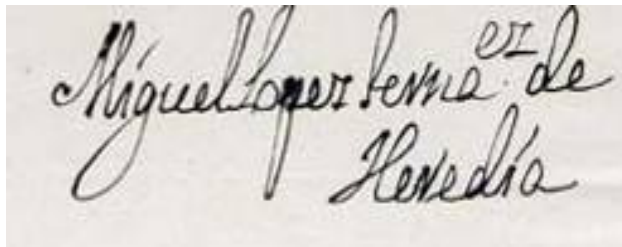 Miguel Lopez Fernaez. de
Heredía